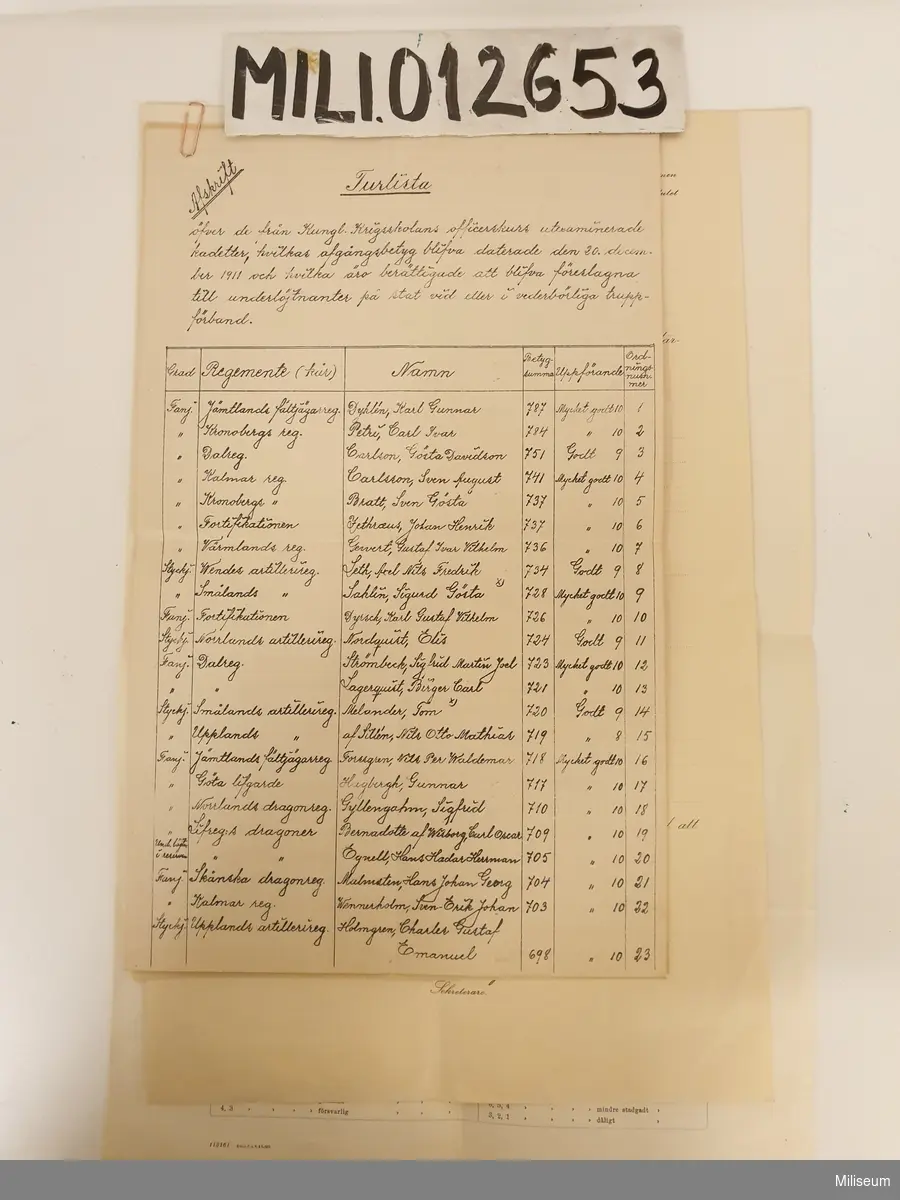 MILI.012653
Afskrift
Turlista
öfver de från Kungl. Krigsskolans officerskurs utexaminerade
kadetter, hvilkas afgångsbetyg blifva daterade den 20. decem-
ber 1911 och hvilka äro berättigade att blifva föreslagna
till underlöjtnanter på stat vid eller i vederbörliga trupp-
förband.
Grad Regemente (kår) Namn Betyg-summa Uppförande Ord-nings-num-mer
Fanj. Jämtlands fältjägarreg. Dyhlén, Karl Gunnar 787 Mycket godt 10 1
" Kronobergs reg. Petri, Carl Ivar 784 " 10 2
" Dalreg. Carlson, Gösta Davidson 751 Godt 9 3
" Kalmar reg. Carlsson, Sven August 741 Mycket godt 10 4
" Kronobergs " Bratt, Sven Gösta 737 " 10 5
" Fortifikationen Zethræus, Johan Henrik 737 " 10 6
" Värmlands reg. Gewert, Gustaf Ivar Vilhelm 736 " 10 7
Styckj. Wendes artillerireg. Seth, Axel Nils Fredrik 734 Godt 9 8
" Smålands " Sahlin, Sigurd Gösta x) 728 Mycket godt 10 9
Fanj. Fortifikationen Dyrsch, Karl Gustaf Vilhelm 726 " 10 10
Styckj. Norrlands artillerireg. Nordquist, Elis 724 Godt 9 11
Fanj. Dalreg. Strömbeck, Sigfrid Martin Joel 723 Mycket godt 10 12
" " Lagerquist, Birger Carl 721 " 10 13
Styckj. Smålands artillerireg. Melander, Tom x) 720 Godt 9 14
" Upplands " af Sillén, Nils Otto Mathias 719 " 8 15
Fanj. Jämtlands fältjägarreg Forssgren, Nils Per Waldemar 718 Mycket godt 10 16
" Göta lifgarde Högbergh, Gunnar 717 " 10 17
" Norrlands dragonreg. Gyllengahm, Sigfrid 710 " 10 18
" Lifreg:s dragoner Bernadotte af Wisborg, Carl Oscar 709 " 10 19
Und. löjtn. i reserven " " Egnell, Hans Hadar Herrman 705 " 10 20
Fanj. Skånska dragonreg. Malmsten, Hans Johan Georg 704 " 10 21
" Kalmar reg. Wennerholm, Sven Erik Johan 703 " 10 22
Styckj. Upplands artillerireg. Holmgren, Charles Gustaf
Emanuel 698 " 10 23
att
Sekreterare
4, 3 " " " försvarlig " "
" " " mindre stadgadt "
3, 2, 1 " " " dåligt "
Miliseum